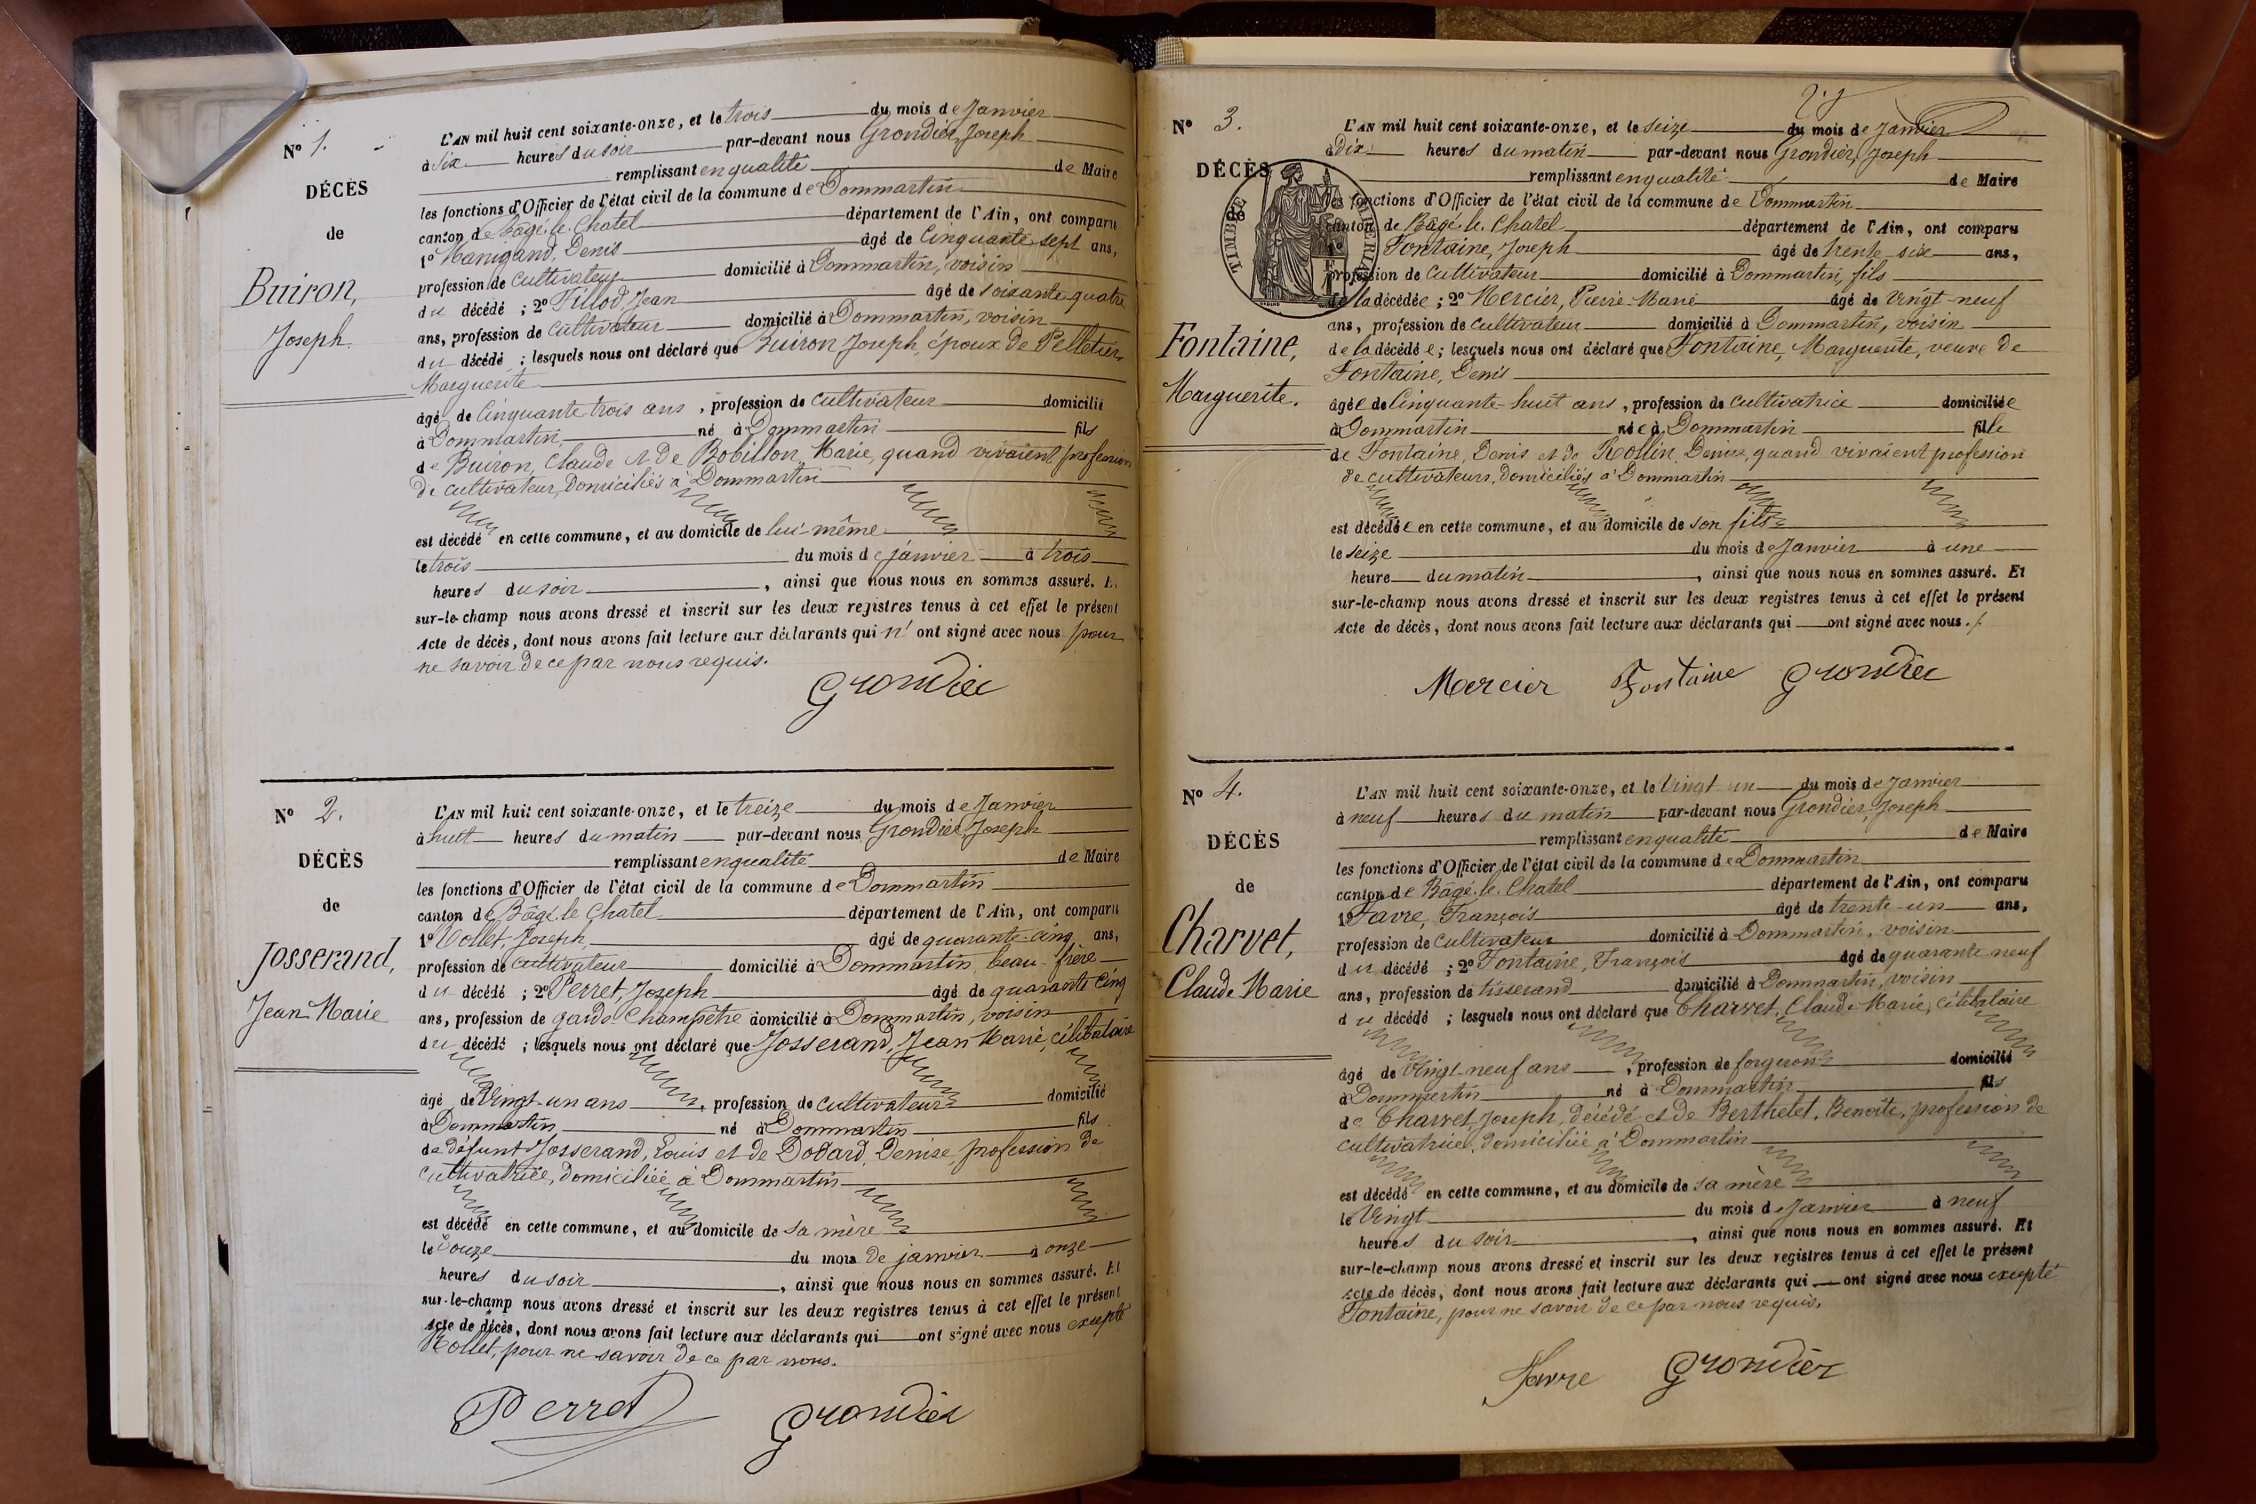 N° 1.
DÉCÈS
de
Buiron,
Joseph.
L'AN mil huit cent soixante-onze, et le trois du mois de Janvier
à six heures du soir par-devant nous Grondier, Joseph
remplissant en qualité de Maire
les fonctions d'Officier de l'état civil de la commune de Dommartin
canton de Bâgé-le-Chatel département de l'Ain, ont comparu
1° Manigand, Denis âgé de Cinquante sept ans,
profession de cultivateur domicilié à Dommartin, voisin
du décédé ; 2° Tillod, Jean âgé de soixante quatre
ans, profession de cultivateur domicilié à Dommartin, voisin
du décédé ; lesquels nous ont déclaré que Buiron Joseph, époux de Pelletier
Marguerite
âgé de Cinquante trois ans, profession de cultivateur domicilié
à Dommartin, né à Dommartin fils
de Buiron, Claude et de Bobillon, Marie, quand vivaient profession
de cultivateur, domiciliés à Dommartin
est décédé en cette commune, et au domicile de lui-même
le trois du mois de janvier à trois
heures du soir, ainsi que nous nous en sommes assuré. Et
sur-le-champ nous avons dressé et inscrit sur les deux registres tenus à cet effet le présent
Acte de décès, dont nous avons fait lecture aux déclarants qui n' ont signé avec nous pour
ne savoir de ce par nous requis.
Grondier
N° 2.
DÉCÈS
de
Josserand,
Jean-Marie
L'AN mil huit cent soixante-onze, et le treize du mois de Janvier
à huit heures du matin par-devant nous Grondier, Joseph
remplissant en qualité de Maire
les fonctions d'Officier de l'état civil de la commune de Dommartin
canton de Bâgé-le-Chatel département de l'Ain, ont comparu
1° Vollet, Joseph, âgé de quarante-cinq ans,
profession de cultivateur domicilié à Dommartin, beau-frère
du décédé ; 2° Perret, Joseph âgé de quarante cinq
ans, profession de garde-Champêtre domicilié à Dommartin, voisin
du décédé ; lesquels nous ont déclaré que Josserand, Jean Marie, célibataire
âgé de Vingt-un ans, profession de cultivateur domicilié
à Dommartin né à Dommartin fils
de défunt Josserand, Louis et de Dodard, Denise, profession de
cultivatrice, domiciliée à Dommartin
est décédé en cette commune, et au domicile de sa mère
le douze du mois de janvier à onze
heures du soir, ainsi que nous nous en sommes assuré. Et
sur-le-champ nous avons dressé et inscrit sur les deux registres tenus à cet effet le présent
Acte de décès, dont nous avons fait lecture aux déclarants qui ont signé avec nous excepté
Vollet, pour ne savoir de ce par nous.
Perret Grondier
N° 3.
DÉCÈS
TIMBRE IMPERIAL
Fontaine,
Marguerite.
L'AN mil huit cent soixante-onze, et le seize du mois de Janvier
à Dix heures du matin par-devant nous Grondier, Joseph
remplissant en qualité de Maire
les fonctions d'Officier de l'état civil de la commune de Dommartin
canton de Bâgé-le-Chatel département de l'Ain, ont comparu
1° Fontaine, Joseph âgé de trente-six ans,
profession de cultivateur domicilié à Dommartin, fils
de la décédée ; 2° Mercier, Pierre-Marie âgé de Vingt-neuf
ans, profession de cultivateur domicilié à Dommartin, voisin
de la décédée ; lesquels nous ont déclaré que Fontaine, Marguerite, veuve de
Fontaine, Denis
âgée de Cinquante-huit ans, profession de cultivatrice domiciliée
à Dommartin née à Dommartin fille
de Fontaine, Denis et de Rollin, Denise, quand vivaient profession
de cultivateurs, domiciliés à Dommartin
est décédée en cette commune, et au domicile de son fils
le seize du mois de Janvier à une
heure du matin, ainsi que nous nous en sommes assuré. Et
sur-le-champ nous avons dressé et inscrit sur les deux registres tenus à cet effet le présent
Acte de décès, dont nous avons fait lecture aux déclarants qui ont signé avec nous.
Mercier Fontaine Grondier
N° 4.
DÉCÈS
de
Charvet,
Claude Marie
L'AN mil huit cent soixante-onze, et le Vingt un du mois de Janvier
à neuf heures du matin par-devant nous Grondier, Joseph
remplissant en qualité de Maire
les fonctions d'Officier de l'état civil de la commune de Dommartin
canton de Bâgé-le-Chatel département de l'Ain, ont comparu
1° Favre, François âgé de trente-un ans,
profession de cultivateur domicilié à Dommartin, voisin
du décédé ; 2° Fontaine, François âgé de quarante neuf
ans, profession de tisserand domicilié à Dommartin, voisin
du décédé ; lesquels nous ont déclaré que Charvet, Claude Marie, célibataire
âgé de Vingt-neuf ans, profession de forgeron domicilié
à Dommartin né à Dommartin fils
de Charvet, Joseph, décédé et de Berthelet, Benoîte, profession de
cultivatrice, domiciliée à Dommartin
est décédé en cette commune, et au domicile de sa mère
le Vingt du mois de Janvier à neuf
heures du soir, ainsi que nous nous en sommes assuré. Et
sur-le-champ nous avons dressé et inscrit sur les deux registres tenus à cet effet le présent
Acte de décès, dont nous avons fait lecture aux déclarants qui ont signé avec nous excepté
Fontaine, pour ne savoir de ce par nous requis.
Favre Grondier